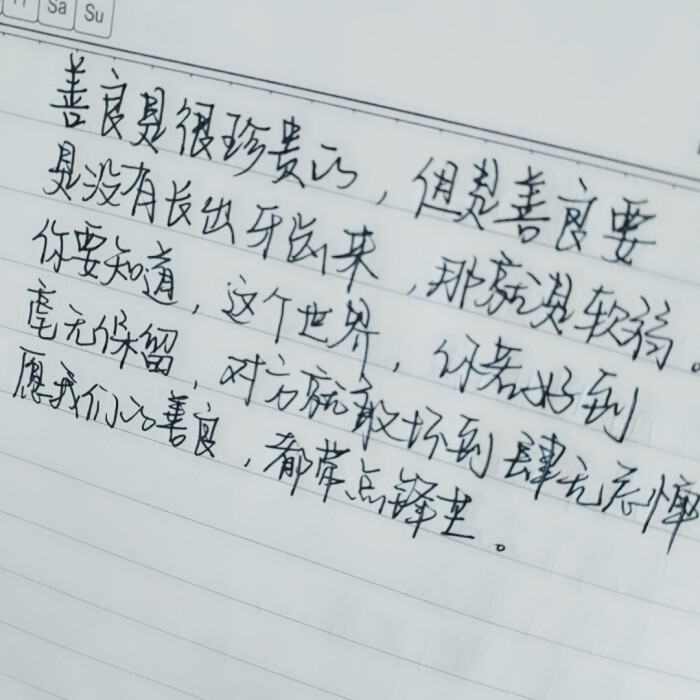 Sa Su
善良是很珍贵的，但是善良要
是没有长出牙齿来，那就是软弱。
你要知道，这个世界，你若好到
毫无保留，对方就敢坏到肆无忌惮
愿我们的善良，都带点锋芒。